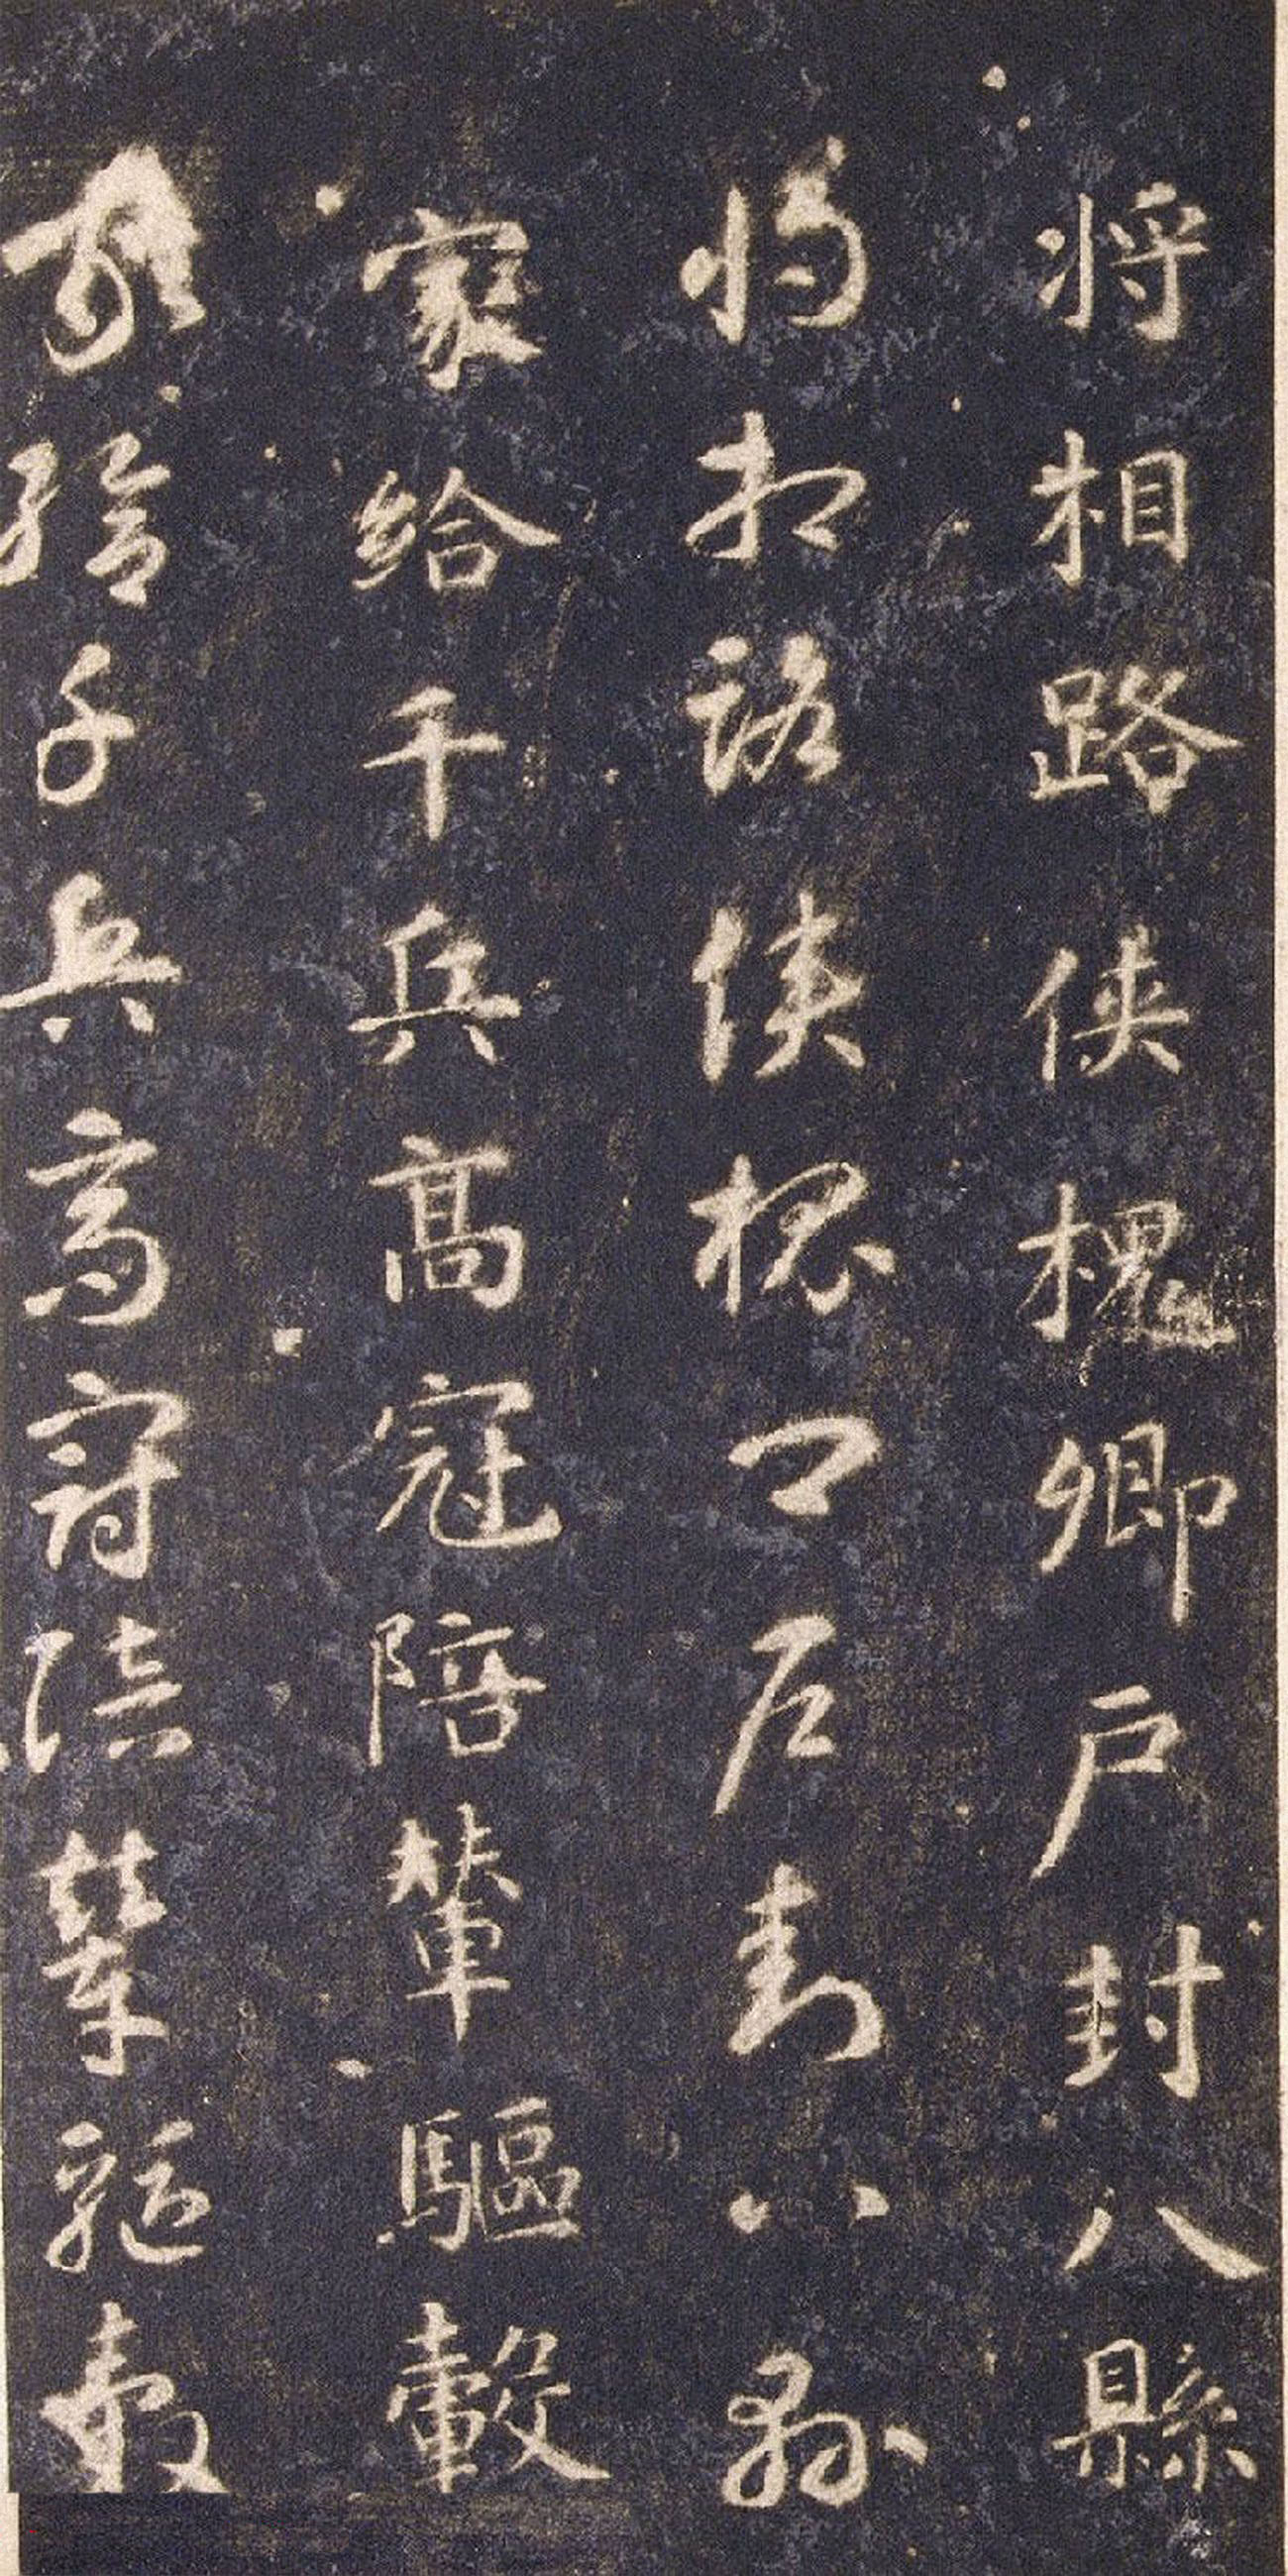 將相路俠槐卿戶封八縣
將相路俠槐卿戶封八縣
家給千兵高冠陪輦驅轂
家給千兵高冠陪輦驅轂